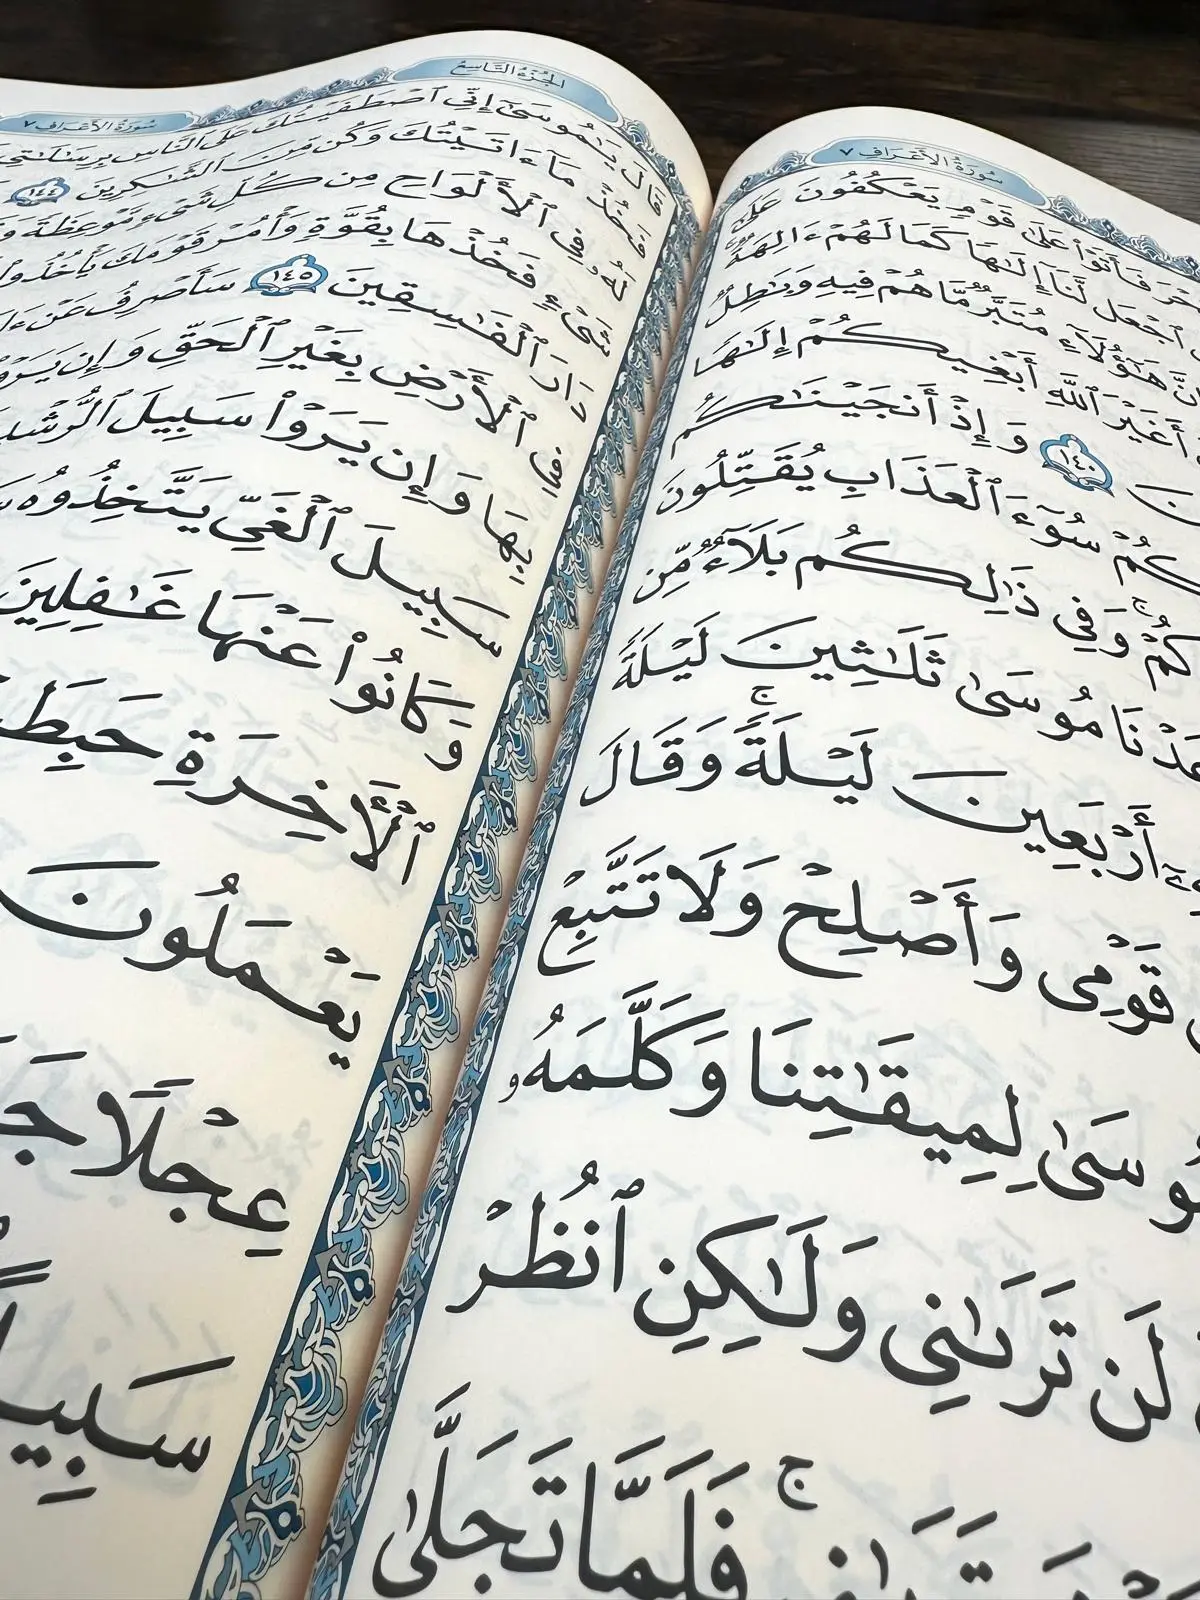 سُورَةُ الأَعْرَافِ ٧
فَأَتَوْا۟ عَلَىٰ قَوْمٍ يَعْكُفُونَ عَلَىٰٓ
ٱجْعَل لَّنَآ إِلَـٰهًا كَمَا لَهُمْ ءَالِهَةٌ
هَـٰٓؤُلَآءِ مُتَبَّرٌ مَّا هُمْ فِيهِ وَبَـٰطِلٌ
أَغَيْرَ ٱللَّهِ أَبْغِيكُمْ إِلَـٰهًا
١٤٠ وَإِذْ أَنجَيْنَـٰكُم
كُمْ سُوٓءَ ٱلْعَذَابِ يُقَتِّلُونَ
كُمْ ۚ وَفِى ذَٰلِكُم بَلَآءٌ مِّن
عَدْنَا مُوسَىٰ ثَلَـٰثِينَ لَيْلَةً
أَرْبَعِينَ لَيْلَةً ۚ وَقَالَ
قَوْمِى وَأَصْلِحْ وَلَا تَتَّبِعْ
مُوسَىٰ لِمِيقَـٰتِنَا وَكَلَّمَهُۥ
لَن تَرَىٰنِى وَلَـٰكِنِ ٱنظُرْ
تَرَىٰنِى ۚ فَلَمَّا تَجَلَّىٰ
الجُزْءُ التَّاسِعُ
سُورَةُ الأَعْرَافِ ٧
قَالَ يَـٰمُوسَىٰٓ إِنِّى ٱصْطَفَيْتُكَ عَلَى ٱلنَّاسِ بِرِسَـٰلَـٰتِى
فَخُذْ مَآ ءَاتَيْتُكَ وَكُن مِّنَ ٱلشَّـٰكِرِينَ ١٤٤
لَهُۥ فِى ٱلْأَلْوَاحِ مِن كُلِّ شَىْءٍ مَّوْعِظَةً
شَىْءٍ فَخُذْهَا بِقُوَّةٍ وَأْمُرْ قَوْمَكَ يَأْخُذُوا۟
دَارَ ٱلْفَـٰسِقِينَ ١٤٥ سَأَصْرِفُ عَنْ
فِى ٱلْأَرْضِ بِغَيْرِ ٱلْحَقِّ وَإِن يَرَوْا۟
بِهَا وَإِن يَرَوْا۟ سَبِيلَ ٱلرُّشْدِ
سَبِيلَ ٱلْغَىِّ يَتَّخِذُوهُ
وَكَانُوا۟ عَنْهَا غَـٰفِلِينَ
ٱلْـَٔاخِرَةِ حَبِطَ
يَعْمَلُونَ
عِجْلًا جَ
سَبِيلًا